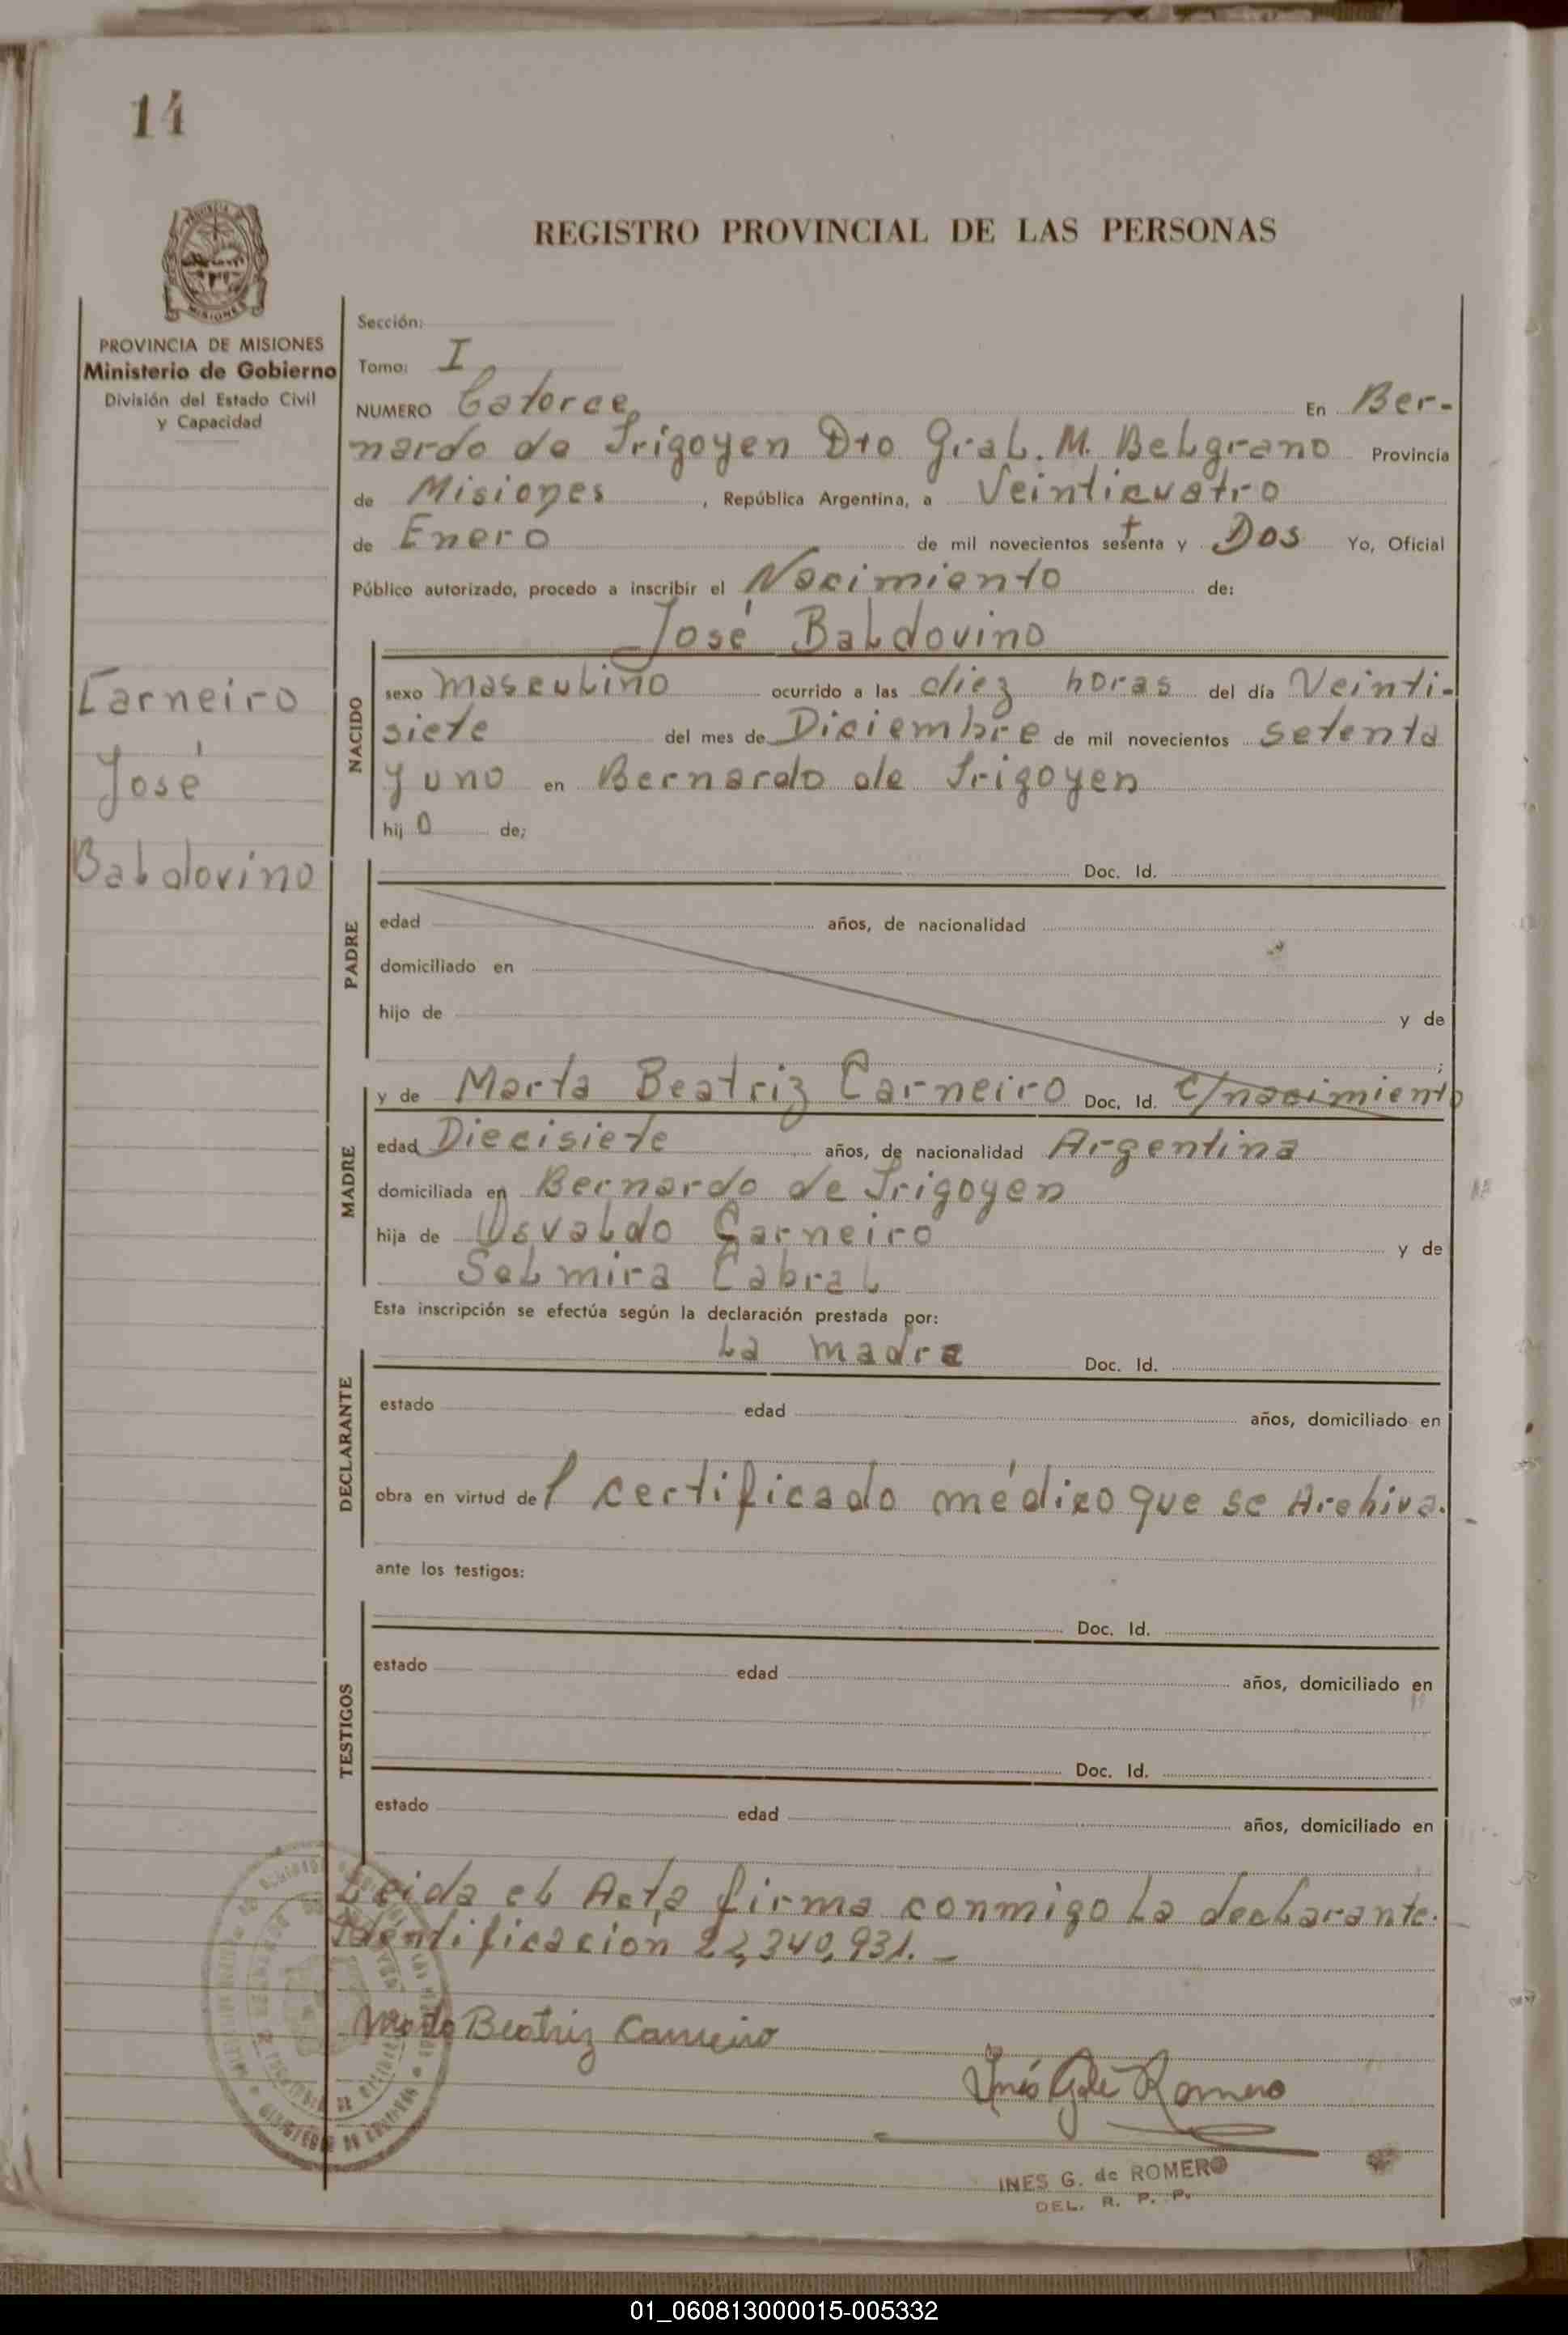 14
REGISTRO PROVINCIAL DE LAS PERSONAS
PROVINCIA DE MISIONES
Ministerio de Gobierno
División del Estado Civil
y Capacidad
Sección:
Tomo: I
NUMERO Catorce En Ber-
nardo de Irigoyen Dto Gral. M. Belgrano Provincia
de Misiones, República Argentina, a Veinticuatro
de Enero de mil novecientos setenta y Dos Yo, Oficial
Público autorizado, procedo a inscribir el Nacimiento de:
José Baldovino
Carneiro
José
Baldovino
NACIDO
sexo masculino ocurrido a las diez horas del día Veinti-
siete del mes de Diciembre de mil novecientos setenta
y uno en Bernardo de Irigoyen
hijo de;
PADRE
Doc. Id.
edad años, de nacionalidad
domiciliado en
hijo de y de
;
MADRE
y de Marta Beatriz Carneiro Doc. Id. c/nacimiento
edad Diecisiete años, de nacionalidad Argentina
domiciliada en Bernardo de Irigoyen
hija de Osvaldo Carneiro y de
Selmira Cabral
Esta inscripción se efectúa según la declaración prestada por:
DECLARANTE
La madre Doc. Id.
estado edad años, domiciliado en
obra en virtud del certificado médico que se Archiva.
ante los testigos:
TESTIGOS
Doc. Id.
estado edad años, domiciliado en
Doc. Id.
estado edad años, domiciliado en
Leida el Acta firma conmigo la declarante.
Identificación 22,340,931.-
Marta Beatriz Carneiro
Inés G de Romero
INES G. de ROMERO
DEL. R. P. P.
01_060813000015-005332